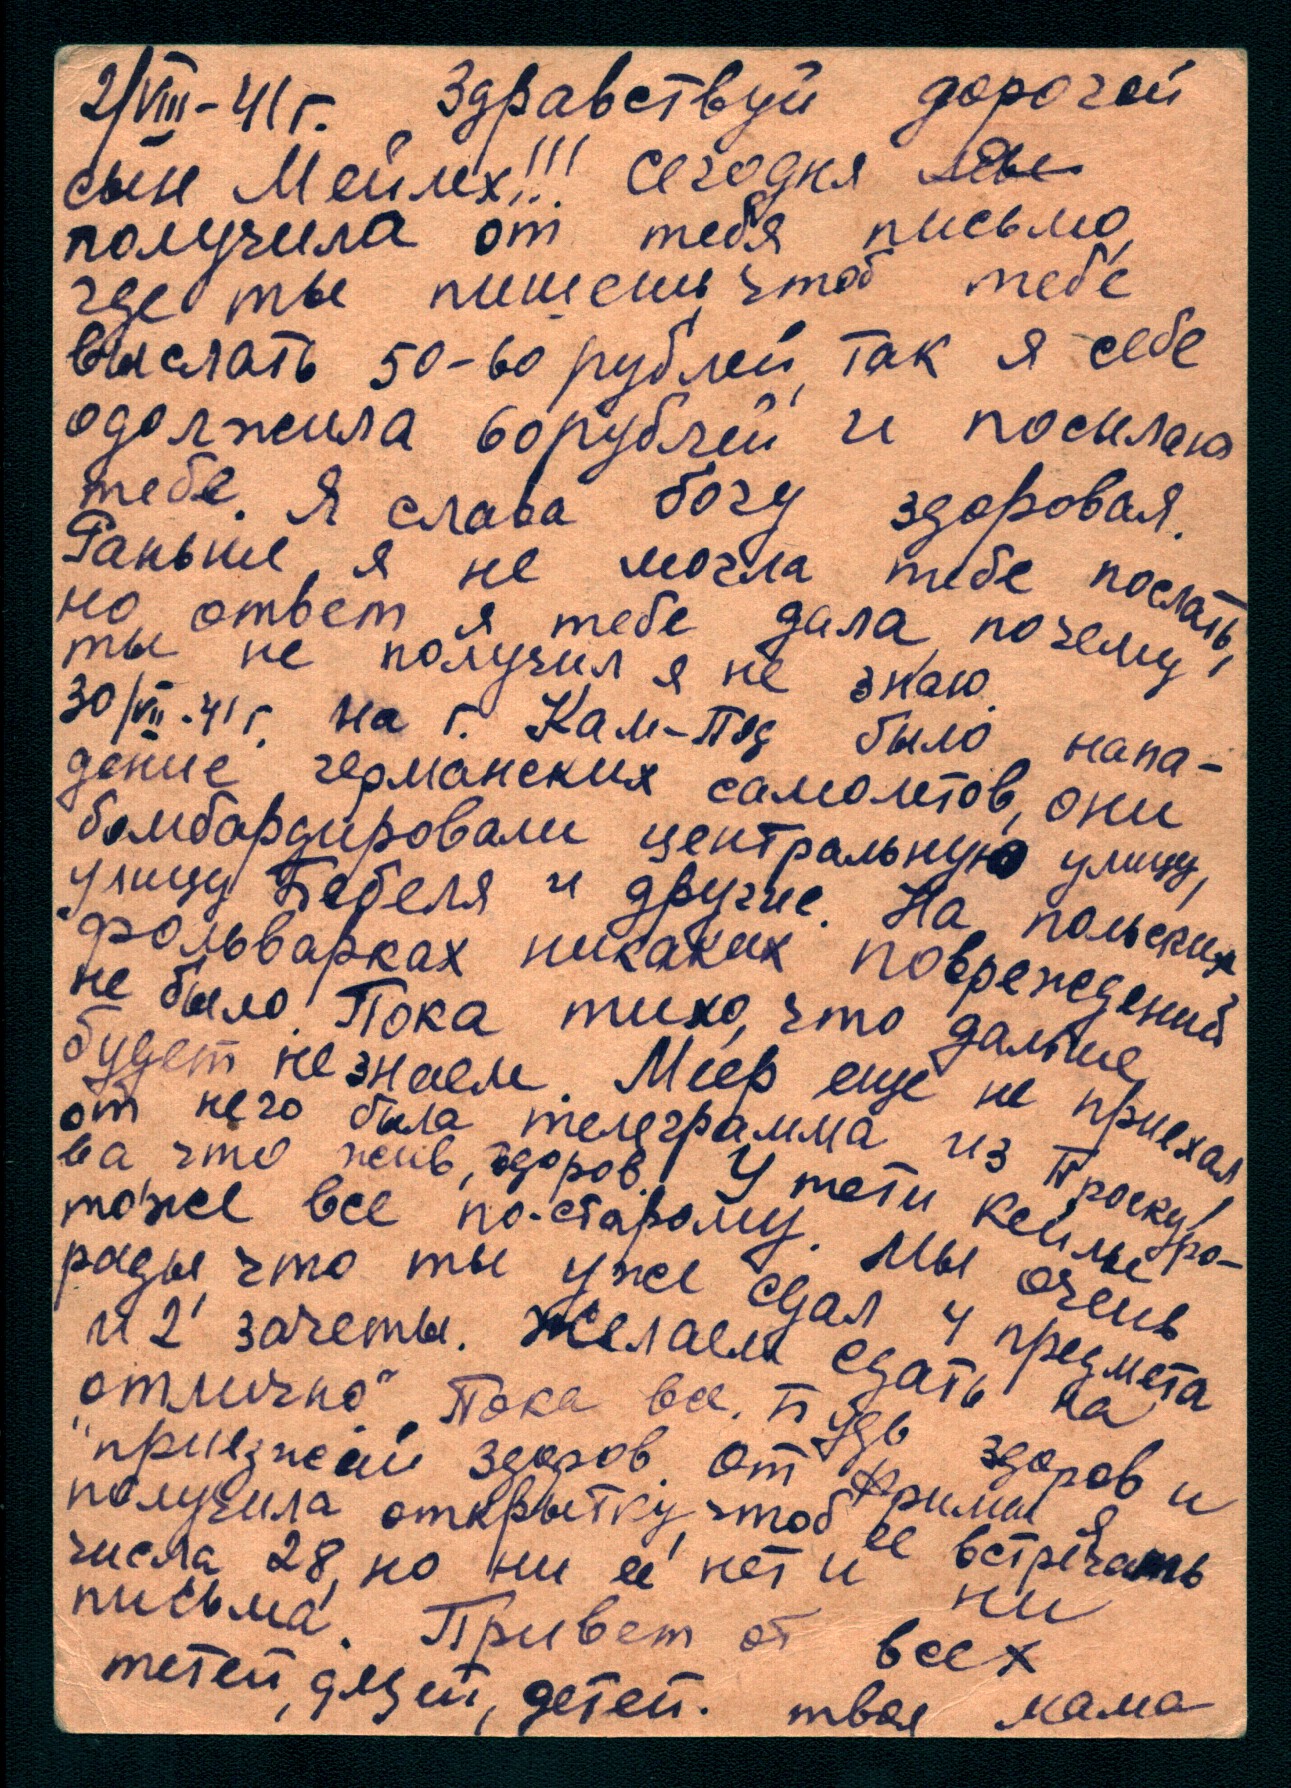 2/VIII-41 г. Здравствуй дорогой
сын Мейлех!!! Сегодня
получила от тебя письмо,
где ты пишешь, чтоб тебе
выслать 50-60 рублей, так я себе
одолжила 60 рублей и посылаю
тебе. Я слава богу здоровая.
Раньше я не могла тебе послать,
но ответ я тебе дала, почему
ты не получил я не знаю.
30/VII-41 г. на г. Кам-Под было напа-
дение германских самолетов, они
бомбардировали центральную улицу,
улицу Бебеля и другие. На польских
фольварках никаких повреждений
не было. Пока тихо, что дальше
будет не знаем. Меер еще не приехал,
от него была телеграмма из Проскуро-
ва что жив, здоров. У тети Кейлы
тоже все по-старому. Мы очень
рады, что ты уже сдал 4 предмета
и 2 зачеты. Желаем сдать на
"отлично". Пока все. Будь здоров и
приезжай здоров. От Фримы я
получила открытку, чтоб ее встречать
числа 28, но ни её нет и ни
письма. Привет от всех
тетей, дядей, детей. твоя мама